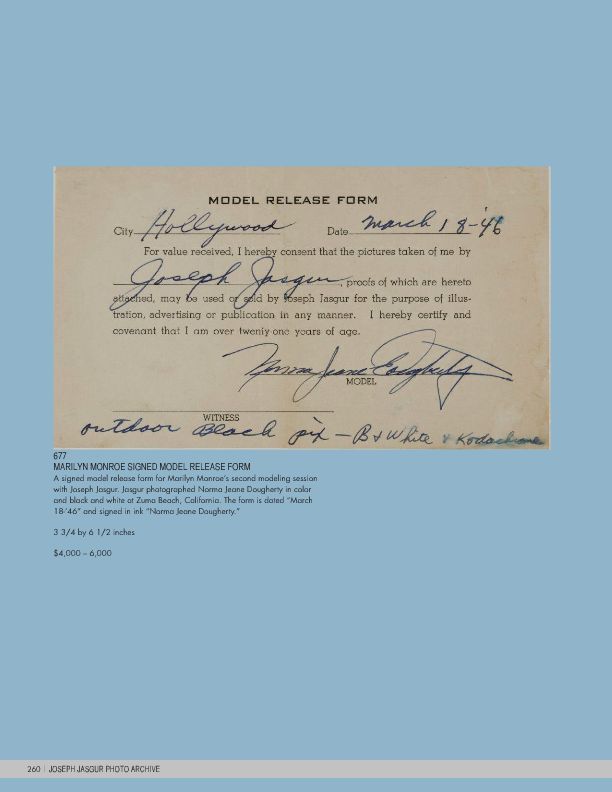 MODEL RELEASE FORM
City Hollywood Date March 18-'46
For value received, I hereby consent that the pictures taken of me by
Joseph Jasgur, proofs of which are hereto
attached, may be used or sold by Joseph Jasgur for the purpose of illus-
tration, advertising or publication in any manner. I hereby certify and
covenant that I am over twenty-one years of age.
Norma Jeane Dougherty
MODEL
WITNESS
outdoor Beach pix - B & White & Kodachrome
677
MARILYN MONROE SIGNED MODEL RELEASE FORM
A signed model release form for Marilyn Monroe's second modeling session
with Joseph Jasgur. Jasgur photographed Norma Jeane Dougherty in color
and black and white at Zuma Beach, California. The form is dated "March
18-'46" and signed in ink "Norma Jeane Dougherty."
3 3/4 by 6 1/2 inches
$4,000 – 6,000
260 | JOSEPH JASGUR PHOTO ARCHIVE